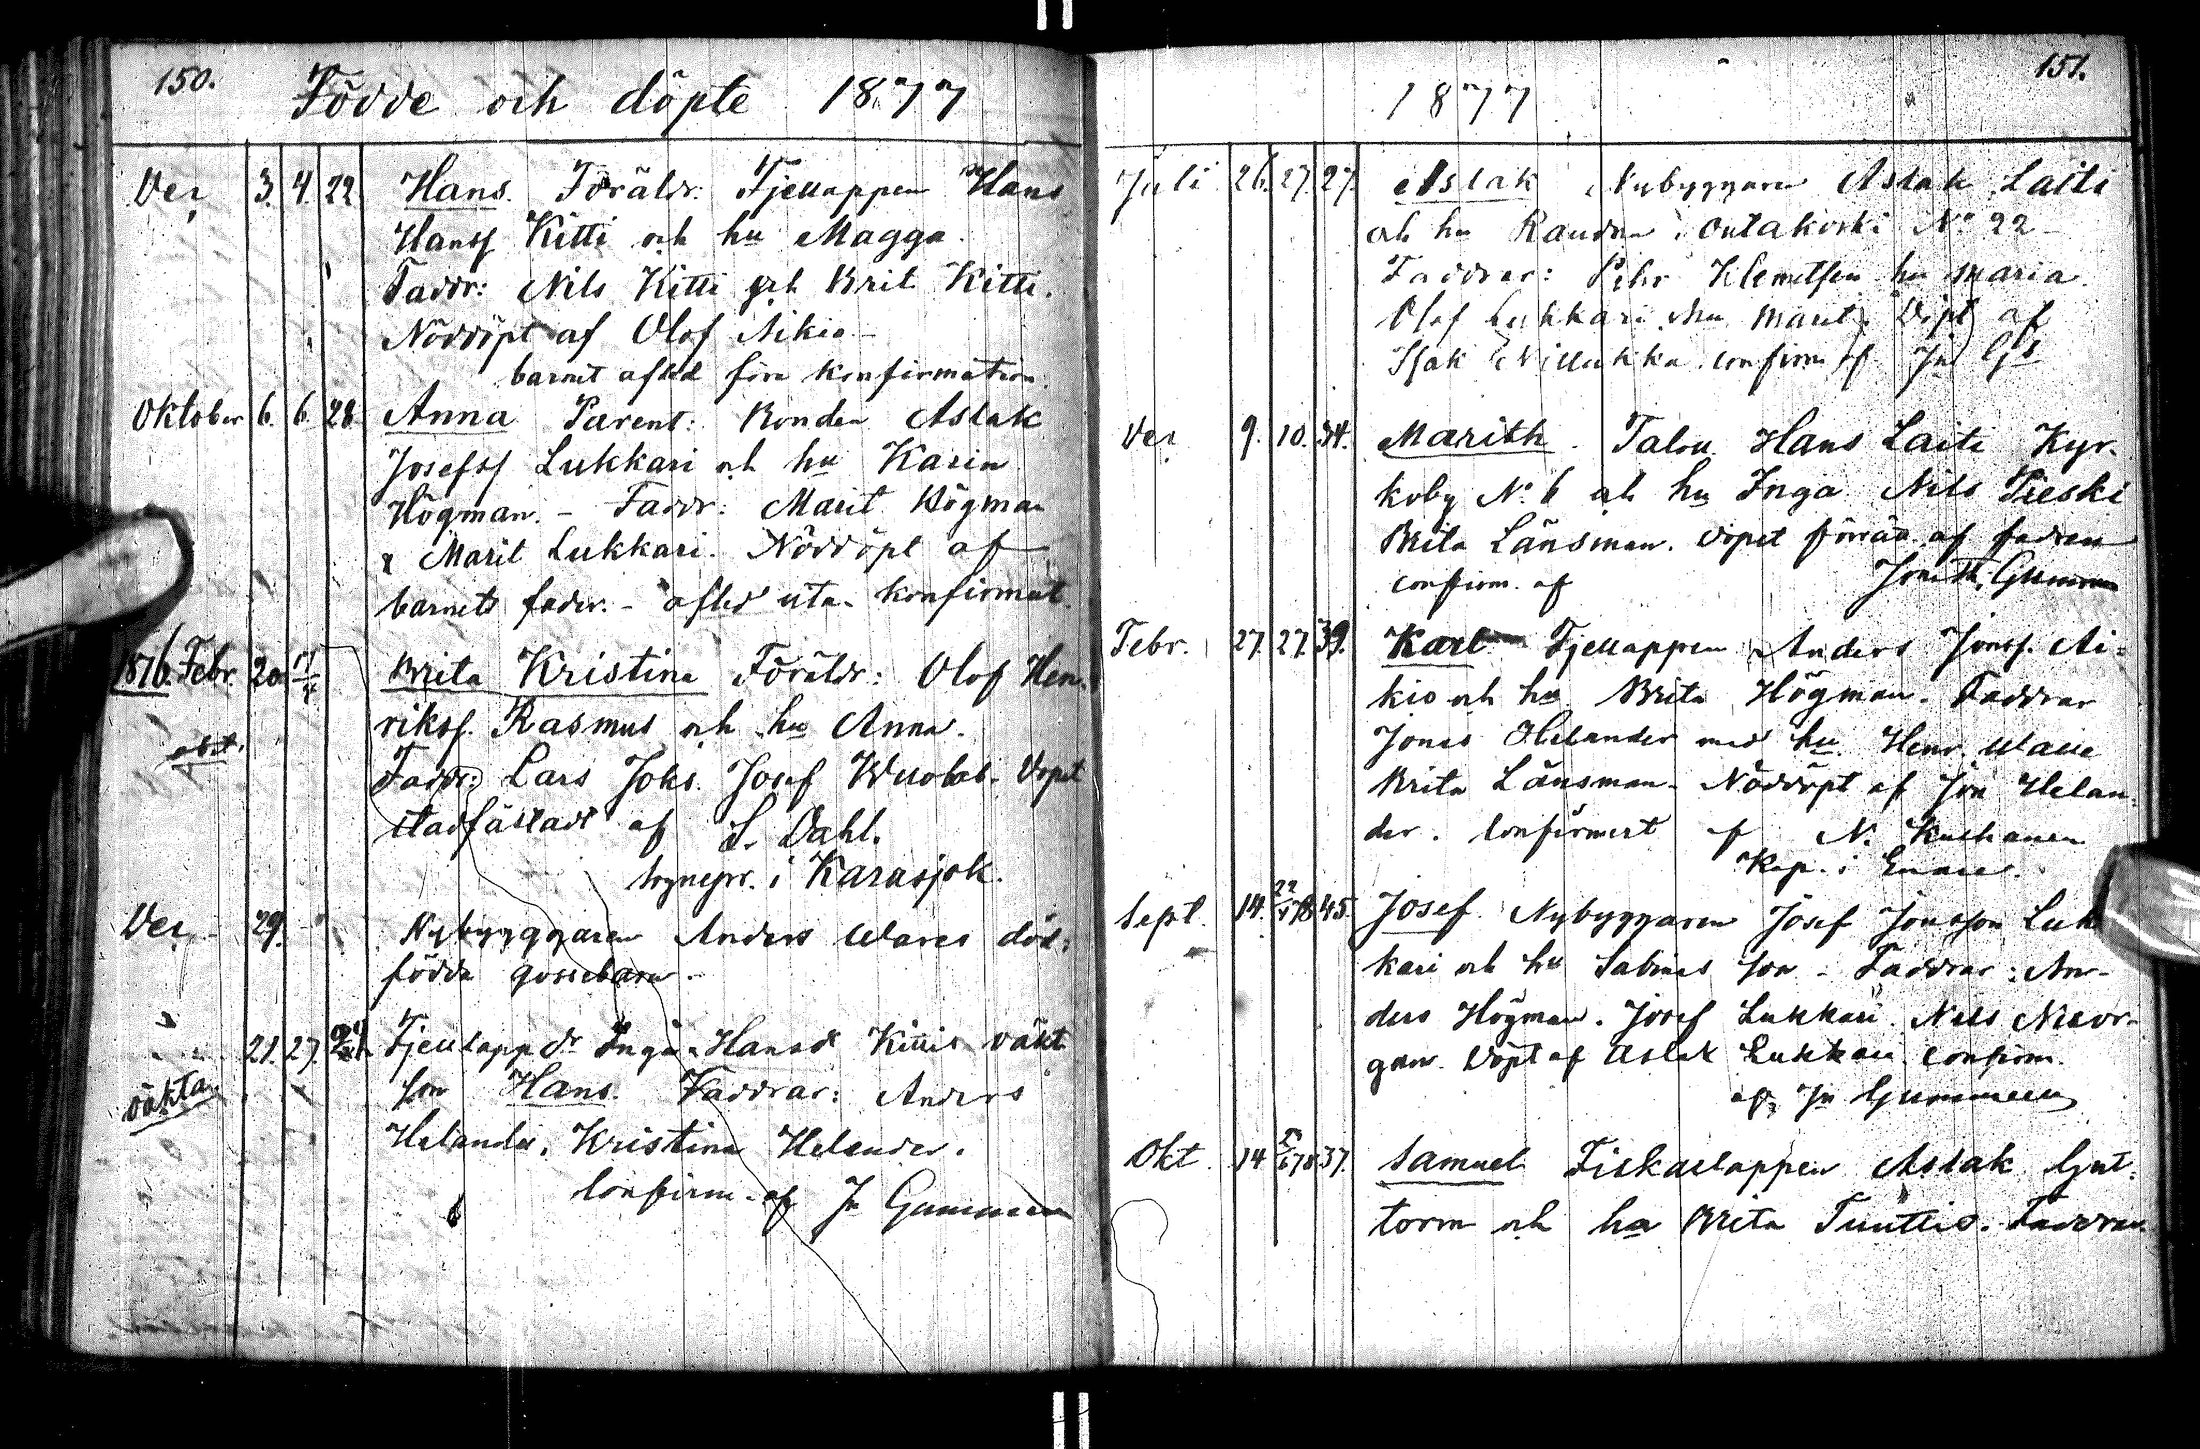 150.
Födde och döpte 1877
Dec. 3. 4. 22 Hans. Föräldr: Fjellappen Hans
Hanss Kitti och hu Magga.
Faddr: Nils Kitti och Brit Kitti.
Nöddöpt af Olof Aikio
barnet afled före konfirmation.
Oktober 6. 6. 28 Anna Parent: Bonden Aslak
Josefss Lukkari och hu Karin
Högman. - Faddr: Marit Högman
& Marit Lukkari. Nöddöpt af
barnets fader. - afled utan konfirmat.
1876. Febr. 20. Brita Kristina Föräldr: Olof Hen-
rikss. Rasmus och hu Anna.
Faddr: Lars Joks. Josef Wuolab. Dopet
stadfästadt af S. Dahl.
sognepr. i Karasjok.
Dec. 29. Nybyggaren Anders Wares död-
födda gossebarn.
21. 27. Fjellapp dr Inga Hansdr Kittis oäkt
oäkta son Hans. Faddrar: Anders
Helander, Kristina Helander.
Confirm. af Jn Gummerus
151.
1877
Juli 26. 27. 27. Aslak Nybyggaren Aslak Laiti
och hu Raudna i Outakoski No 22
Faddrar: Pehr Klemetsen hu Maria.
Olof Lukkari hu Marit. Döpt af
Isak confirm af Jn Gs
Dec 9. 10. 34. Marith. Talou. Hans Laiti Kyr-
koby No 6 och hu Inga Nils Pieski
Brita Länsman. Dopet förräa af fadren
confirm. af Jon Th. Gummerus
Febr. 27. 27. 39. Karl Fjellappen Anders Jonss. Ai-
kio och hu Brita Högman. Faddrar
Jonas Helander med hu Henr. Walle
Brita Länsman. Nöddöpt af Jon Helan-
der. Confirmert af N.
Kap. i Enare.
Sept. 14. 22 78 45. Josef. Nybyggaren Josef Jonsson Luk
kari och hu Sabinas son - Faddrar: An-
ders Högman. Josef Lukkari. Nils
Döpt af Aslak Lukkari confirm.
af Jn Gummerus
Okt. 14 78 37. Samuel Fiskarlappen Aslak Gut-
torm och hu Brita. Faddrar